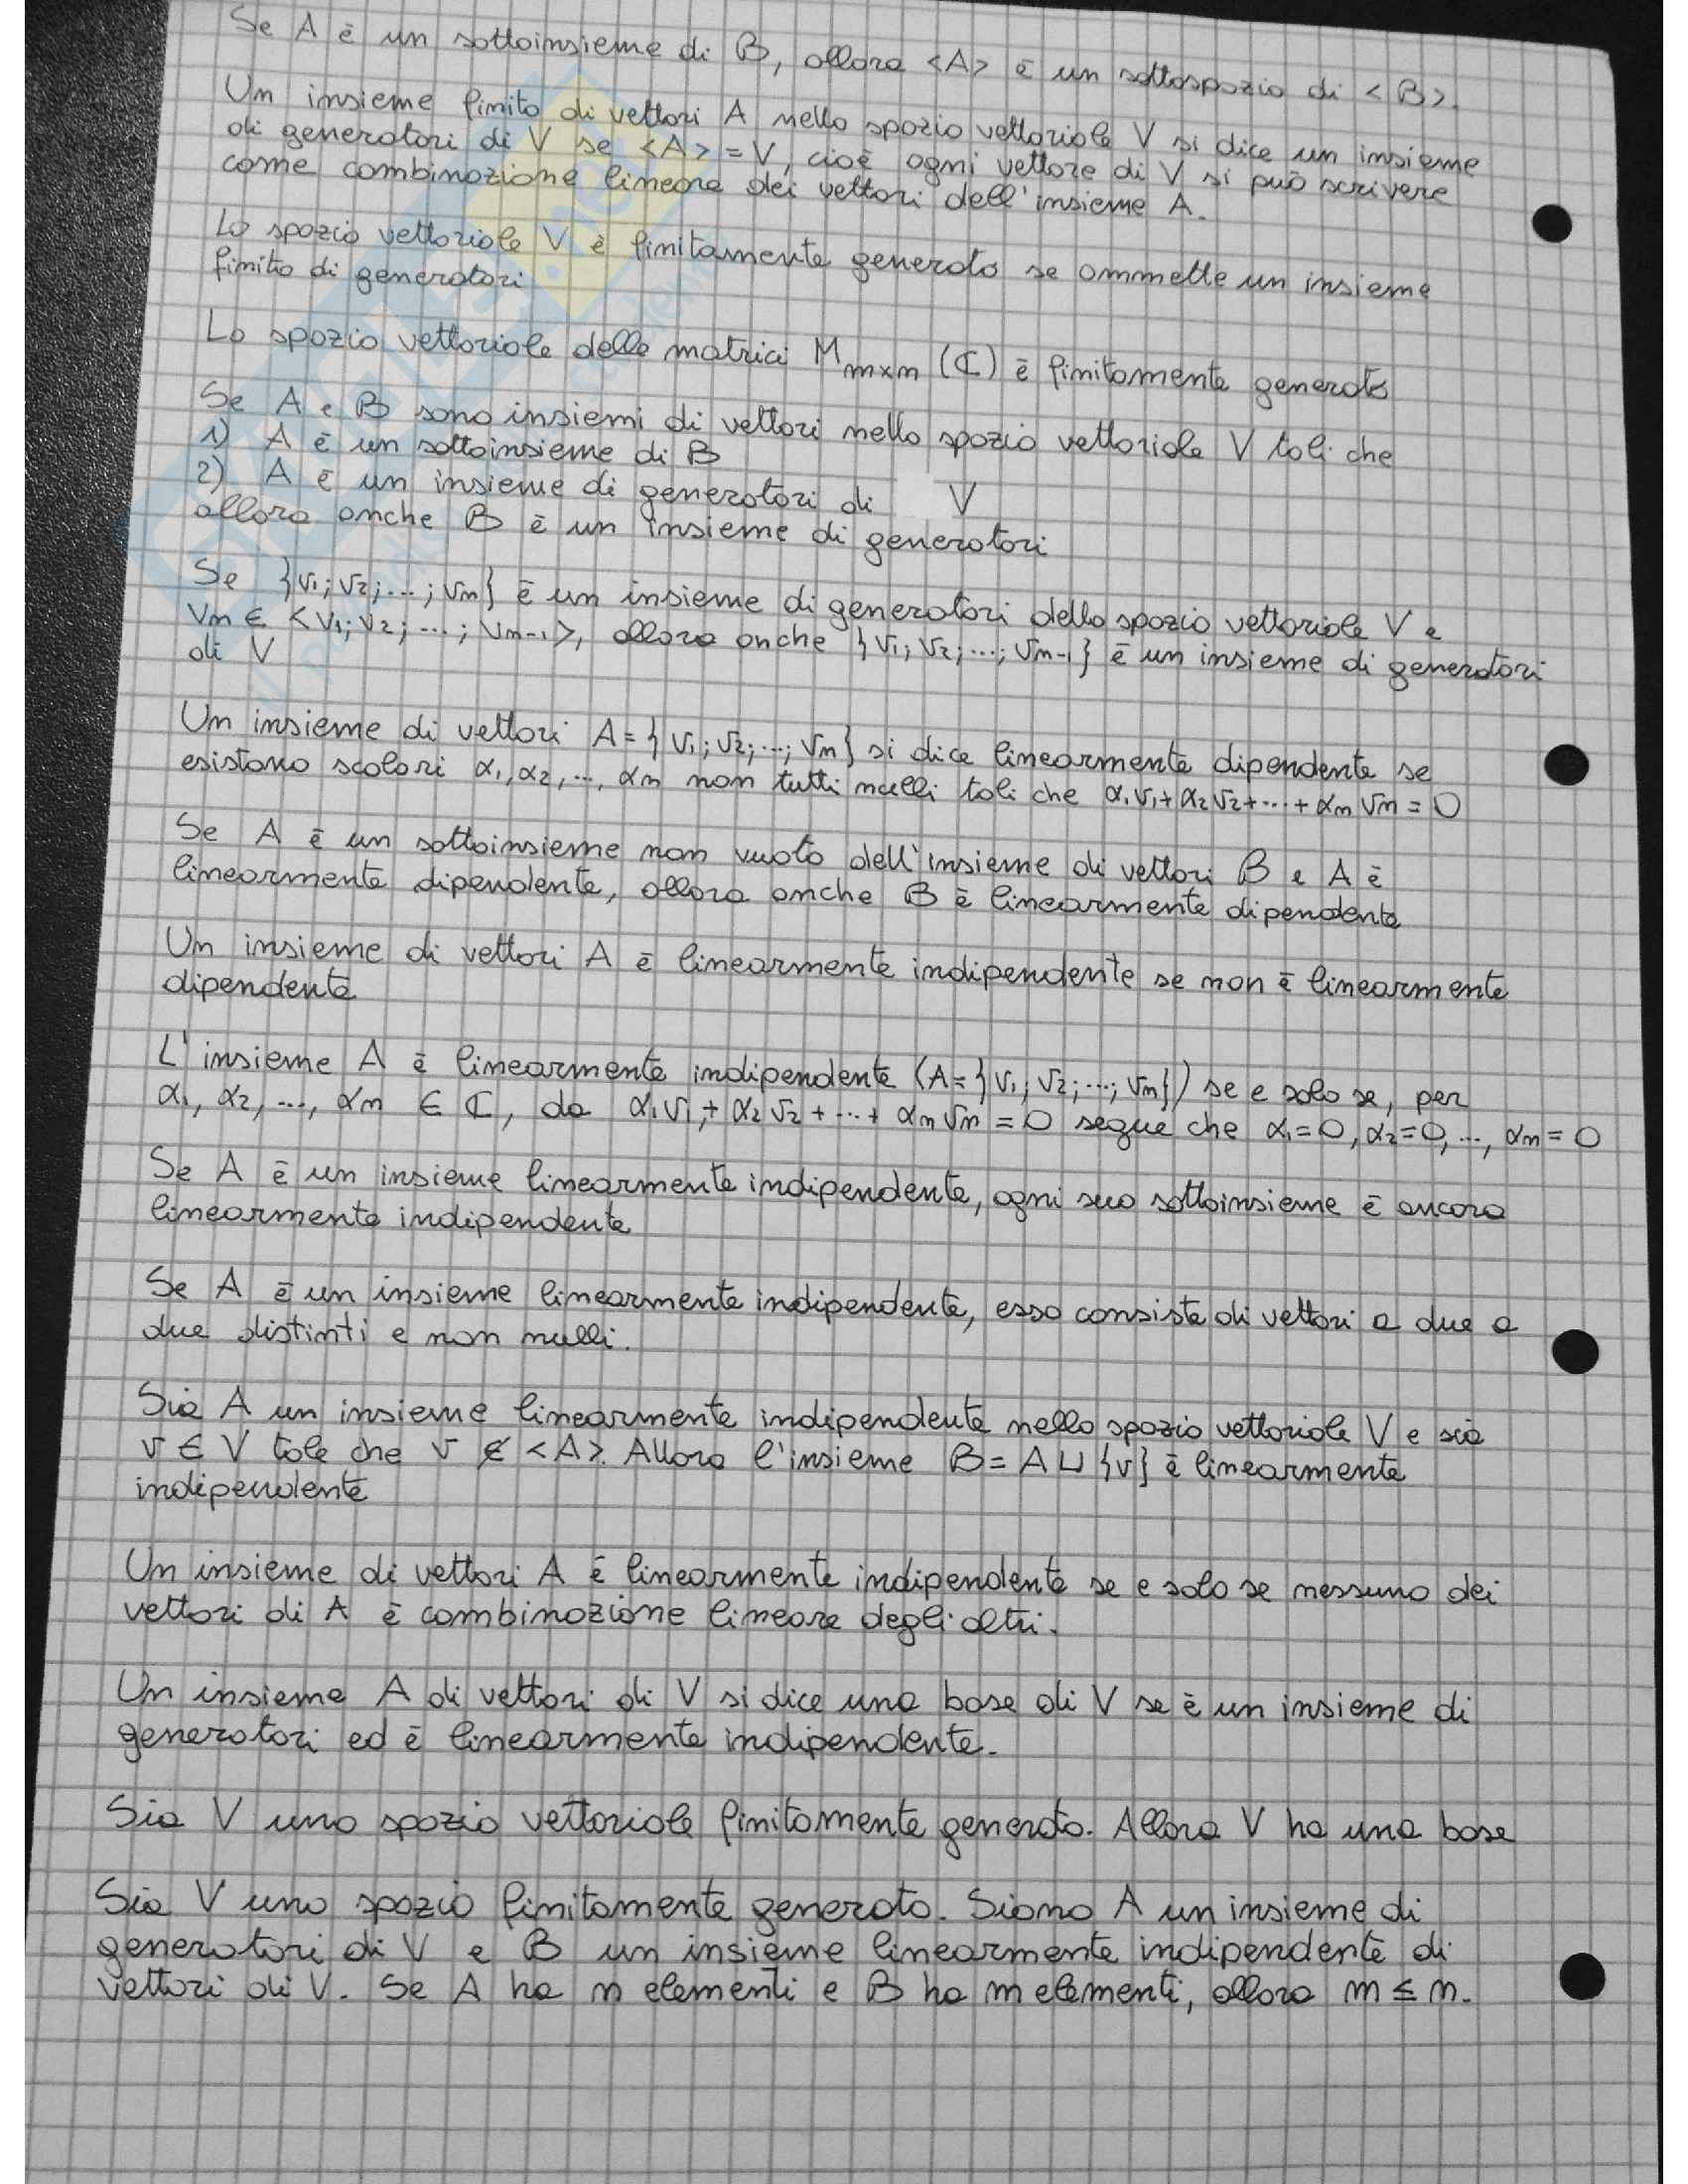 Se A è un sottoinsieme di B, allora <A> è un sottospazio di <B>.
Un insieme finito di vettori A nello spazio vettoriale V si dice un insieme
di generatori di V se <A> = V, cioè ogni vettore di V si può scrivere
come combinazione lineare dei vettori dell'insieme A.
Lo spazio vettoriale V è finitamente generato se ammette un insieme
finito di generatori
Lo spazio vettoriale delle matrici Mm×n (ℂ) è finitamente generato
Se A e B sono insiemi di vettori nello spazio vettoriale V tali che
1) A è un sottoinsieme di B
2) A è un insieme di generatori di V
allora anche B è un insieme di generatori
Se {v1; v2; ...; vn} è un insieme di generatori dello spazio vettoriale V e
vn ∈ <v1; v2; ...; vn-1>, allora anche {v1; v2; ...; vn-1} è un insieme di generatori
di V
Un insieme di vettori A = {v1; v2; ...; vn} si dice linearmente dipendente se
esistono scalari α1, α2, ..., αn non tutti nulli tali che α1v1 + α2v2 + ... + αnvn = 0
Se A è un sottoinsieme non vuoto dell'insieme di vettori B e A è
linearmente dipendente, allora anche B è linearmente dipendente
Un insieme di vettori A è linearmente indipendente se non è linearmente
dipendente
L'insieme A è linearmente indipendente (A = {v1; v2; ...; vn}) se e solo se, per
α1, α2, ..., αn ∈ ℂ, da α1v1 + α2v2 + ... + αnvn = 0 segue che α1 = 0, α2 = 0, ..., αn = 0
Se A è un insieme linearmente indipendente, ogni suo sottoinsieme è ancora
linearmente indipendente
Se A è un insieme linearmente indipendente, esso consiste di vettori a due a
due distinti e non nulli.
Sia A un insieme linearmente indipendente nello spazio vettoriale V e sia
v ∈ V tale che v ∉ <A>. Allora l'insieme B = A ∪ {v} è linearmente
indipendente
Un insieme di vettori A è linearmente indipendente se e solo se nessuno dei
vettori di A è combinazione lineare degli altri.
Un insieme A di vettori di V si dice una base di V se è un insieme di
generatori ed è linearmente indipendente.
Sia V uno spazio vettoriale finitamente generato. Allora V ha una base
Sia V uno spazio finitamente generato. Siano A un insieme di
generatori di V e B un insieme linearmente indipendente di
vettori di V. Se A ha n elementi e B ha m elementi, allora m ≤ n.